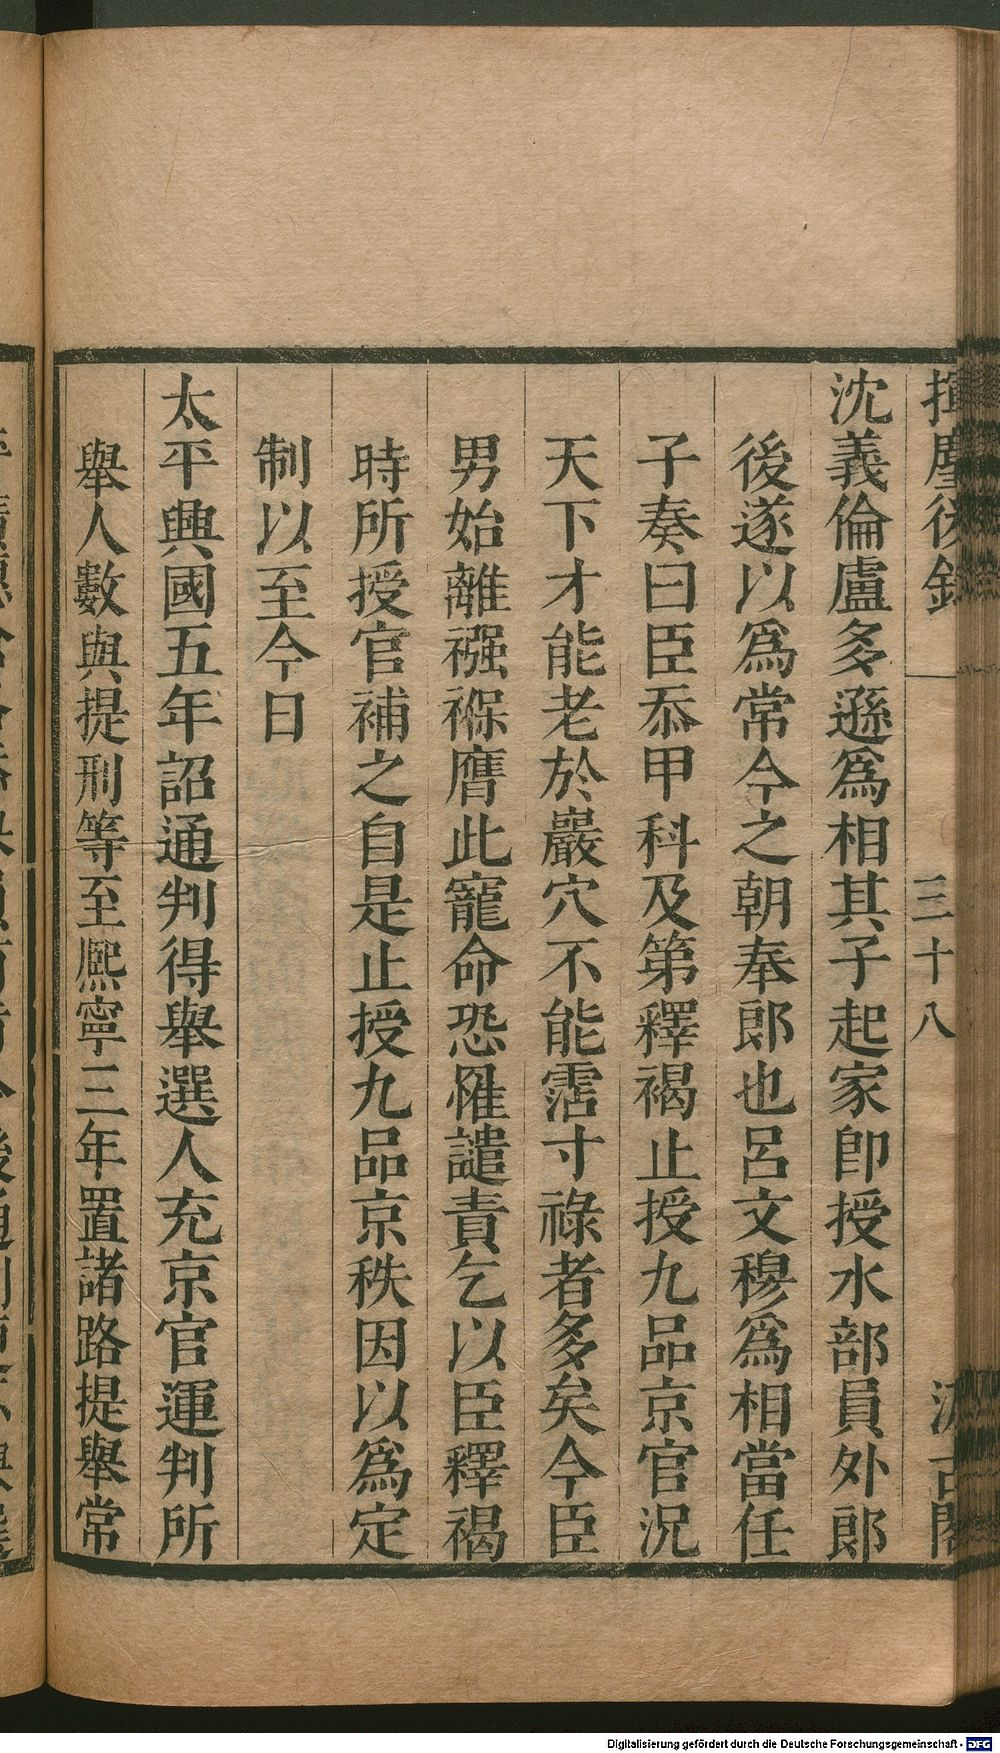 揮麈後錄
三十八
汲古閣
沈義倫盧多遜爲相其子起家卽授水部員外郎
後遂以爲常今之朝奉郎也呂文穆爲相當任
子奏曰臣忝甲科及第釋褐止授九品京官況
天下才能老於巖穴不能霑寸祿者多矣今臣
男始離襁褓膺此寵命恐罹譴責乞以臣釋褐
時所授官補之自是止授九品京秩因以爲定
制以至今日
太平興國五年詔通判得舉選人充京官運判所
舉人數與提刑等至熈寧三年置諸路提舉常
Digitalisierung gefördert durch die Deutsche Forschungsgemeinschaft - DFG